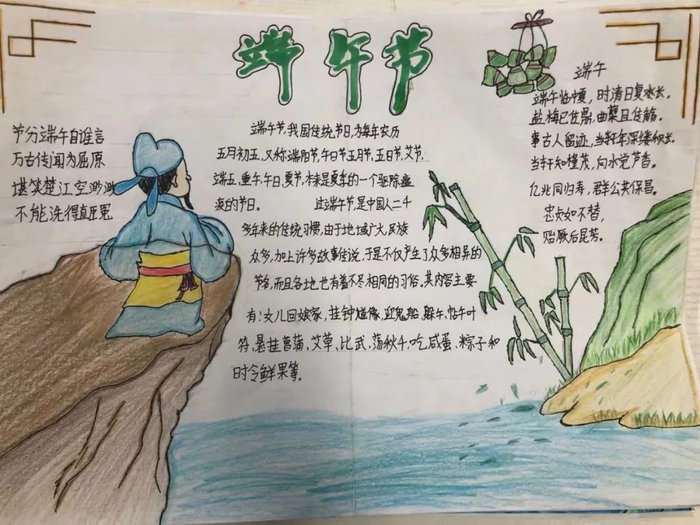 端午节
节分端午自谁言
万古传闻为屈原
堪笑楚江空渺渺
不能洗得直臣冤
端午节,我国传统节日,为每年农历
五月初五,又称端阳节,午日节五月节,五日节,艾节,
端五,重午,午日,夏节,本来是夏季的一个驱除瘟
疫的节日。 过端午节是中国人二千
多年来的传统习惯,由于地域广大,民族
众多,加上许多故事传说,于是不仅产生了众多相异的
节名,而且各地也有着不尽相同的习俗,其内容主要
有:女儿回娘家,挂钟馗像,迎鬼船,躲午,帖午叶
符,悬挂菖蒲,艾草,比武,荡秋千,吃咸蛋,粽子和
时令鲜果等。
端午
端午临中夏,时清日复长。
盐梅已佐鼎,曲糵且传觞。
事古人留迹,年深缕积长。
当轩知槿茂,向水觉芦香。
亿兆同归寿,群公共保昌。
忠贞如不替,
贻厥后昆芳。